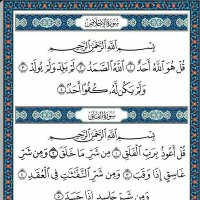 سُورَةُ الإِخْلَاصِ
بِسْمِ اللَّهِ الرَّحْمَٰنِ الرَّحِيمِ
قُلْ هُوَ اللَّهُ أَحَدٌ ١ اللَّهُ الصَّمَدُ ٢ لَمْ يَلِدْ وَلَمْ يُولَدْ ٣
وَلَمْ يَكُن لَّهُ كُفُوًا أَحَدٌ ٤
سُورَةُ الْفَلَقِ
بِسْمِ اللَّهِ الرَّحْمَٰنِ الرَّحِيمِ
قُلْ أَعُوذُ بِرَبِّ الْفَلَقِ ١ مِن شَرِّ مَا خَلَقَ ٢ وَمِن شَرِّ
غَاسِقٍ إِذَا وَقَبَ ٣ وَمِن شَرِّ النَّفَّاثَاتِ فِي الْعُقَدِ ٤
وَمِن شَرِّ حَاسِدٍ إِذَا حَسَدَ ٥